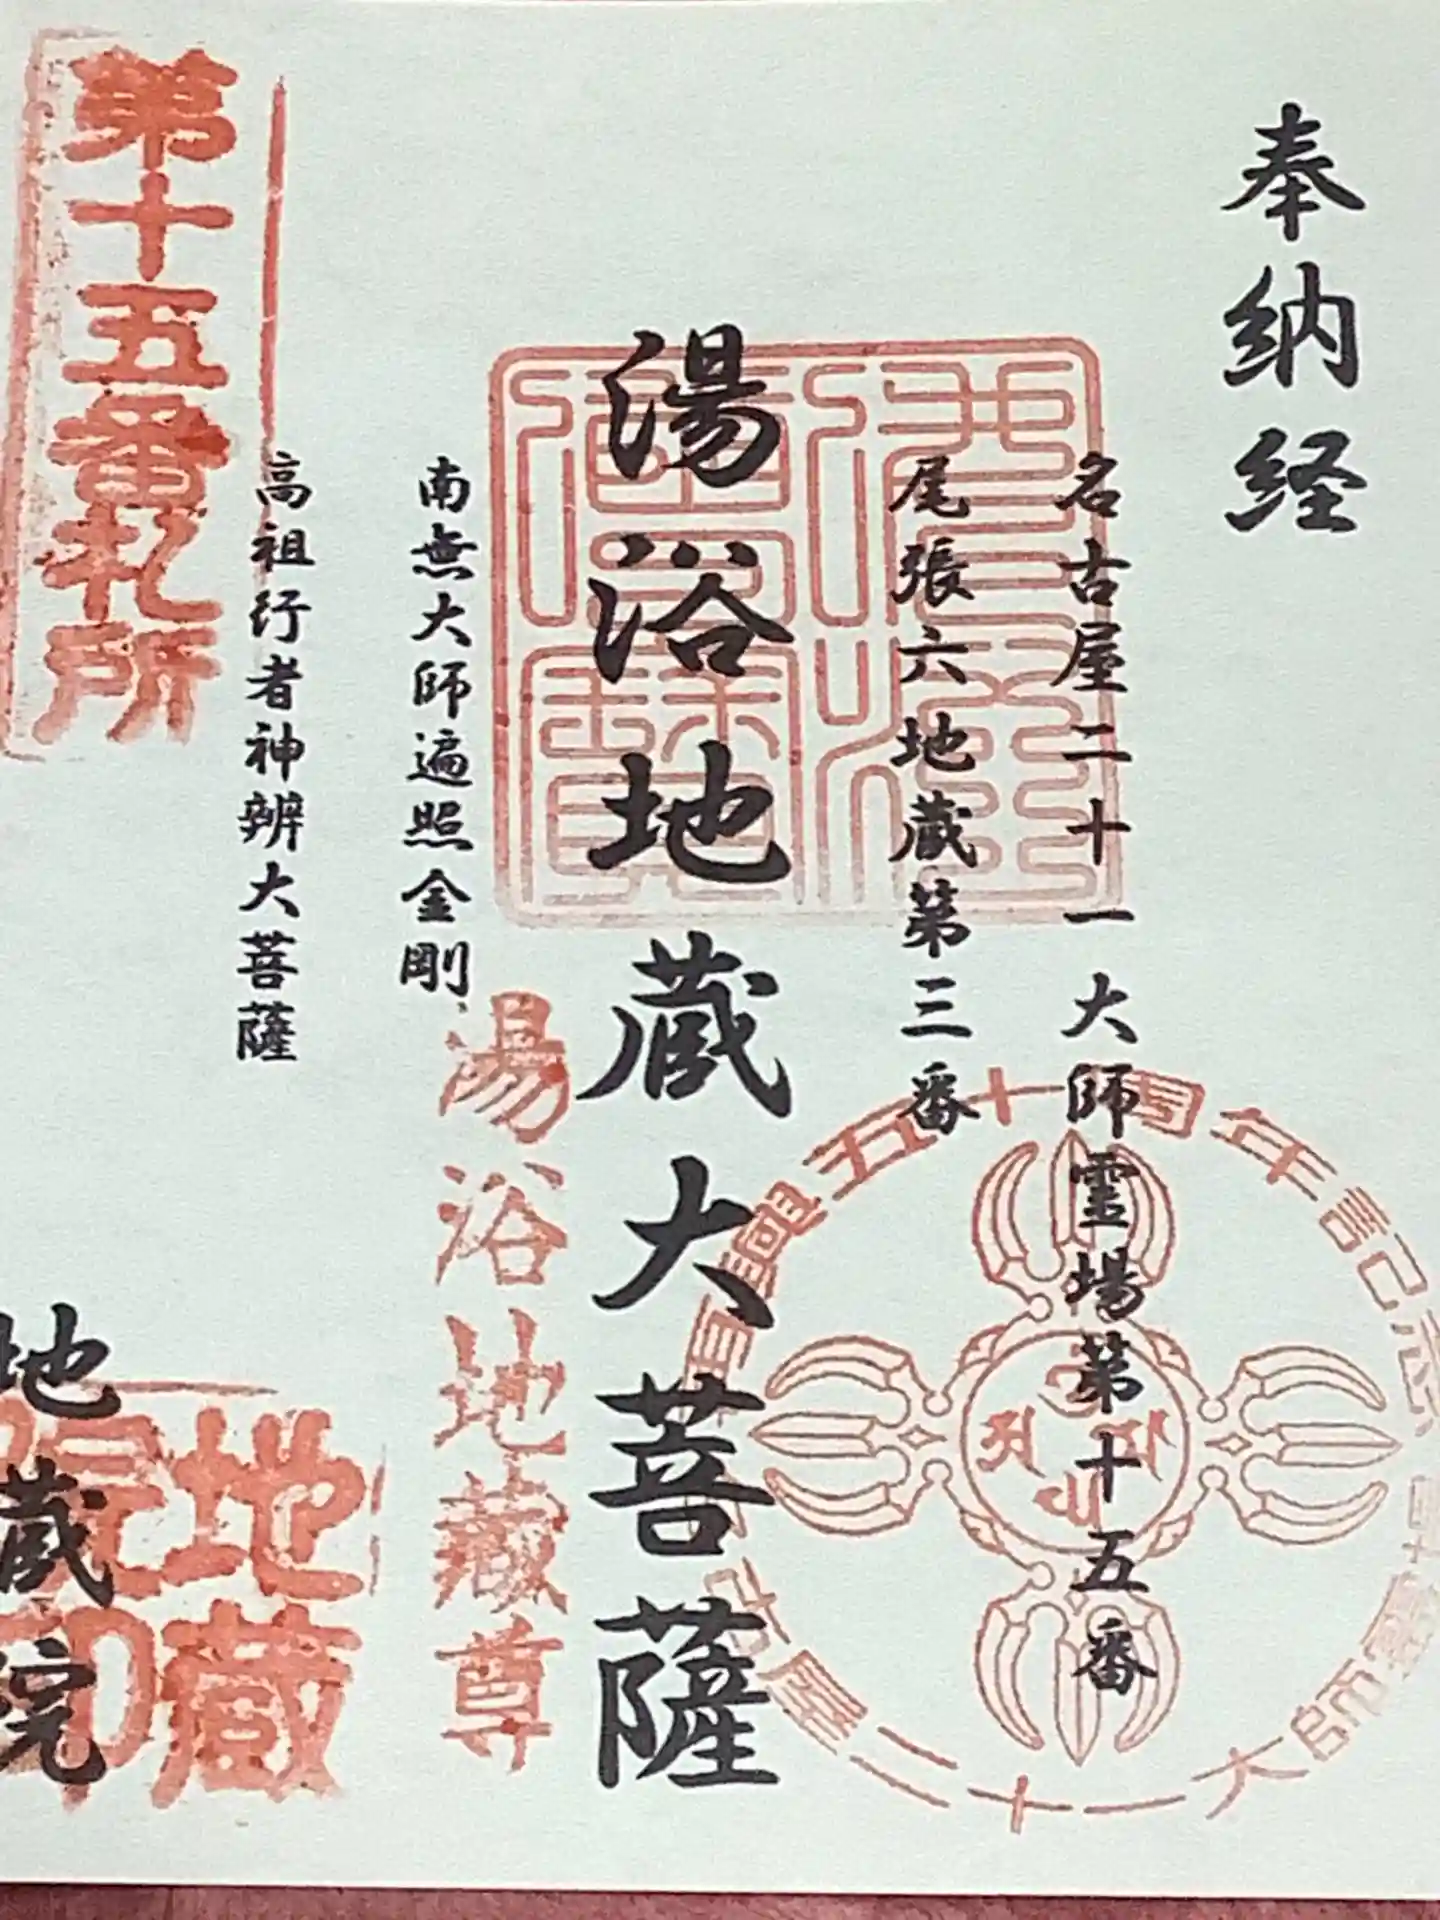 奉納経
名古屋二十一大師霊場第十五番
尾張六地蔵第三番
湯浴地蔵大菩薩
湯浴地蔵尊
南無大師遍照金剛
高祖行者神辨大菩薩
第十五番札所
地蔵院
地蔵
院印
五十周年記念
大師
二十一